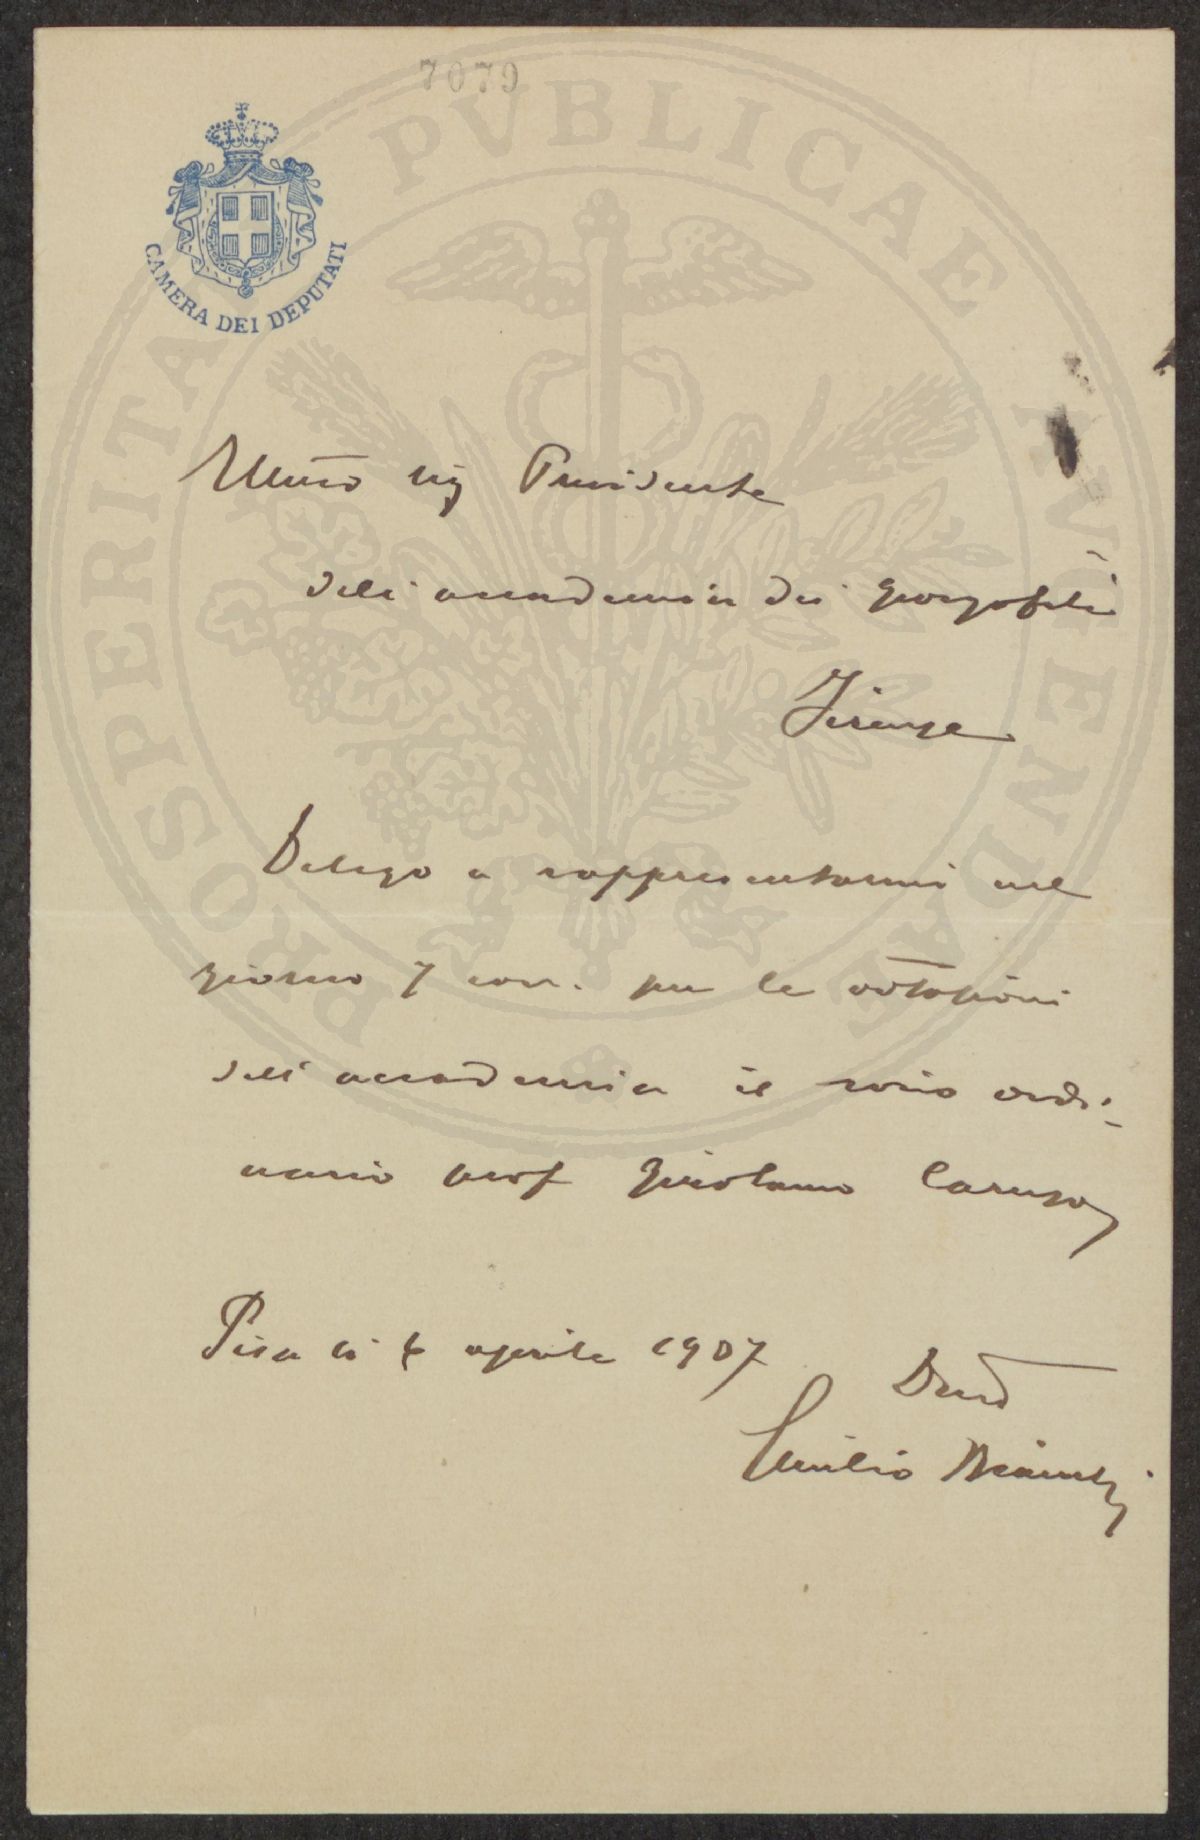 7079
CAMERA DEI DEPUTATI
PROSPERITATI PVBLICAE AVGENDAE
Illmo sig Presidente
dell'accademia dei georgofili
Firenze
Delego a rappresentarmi nel
giorno 7 corr. per le votazioni
dell'accademia il socio ordi-
nario prof Girolamo Caruso
Pisa li 6 aprile 1907
Devmo
Emilio Bianchi